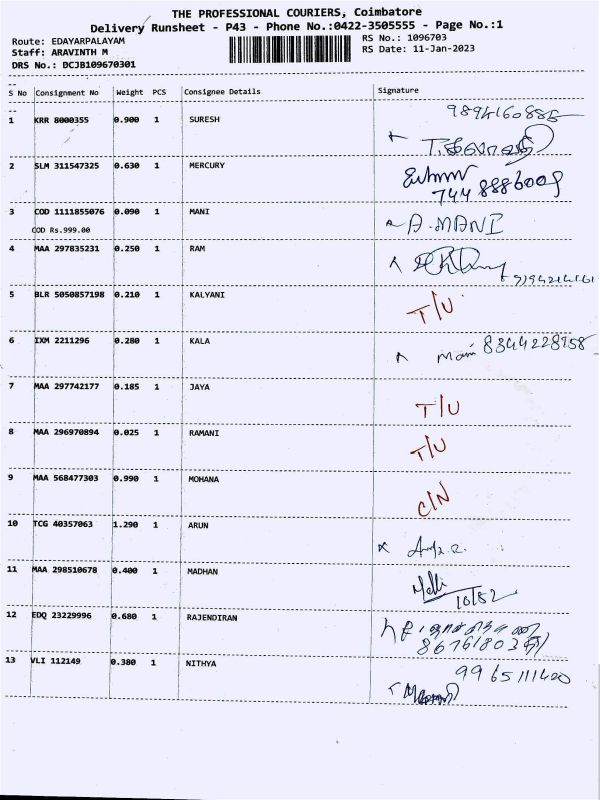 THE PROFESSIONAL COURIERS, Coimbatore
Delivery Runsheet - P43 - Phone No.:0422-3505555 - Page No.:1
Route: EDAYARPALAYAM RS No.: 1096703
Staff: ARAVINTH M RS Date: 11-Jan-2023
DRS No.: DCJB109670301
S No Consignment No Weight PCS Consignee Details Signature
1 KRR 8000355 0.900 1 SURESH
2 SLM 311547325 0.630 1 MERCURY
3 COD 1111855076 0.090 1 MANI A.MANI
COD Rs.999.00
4 MAA 297835231 0.250 1 RAM
5 BLR 5050857198 0.210 1 KALYANI T/U
6 IXM 2211296 0.280 1 KALA 8344228958
7 MAA 297742177 0.185 1 JAYA T/U
8 MAA 296970894 0.025 1 RAMANI T/U
9 MAA 568477303 0.990 1 MOHANA C/N
10 TCG 40357063 1.290 1 ARUN
11 MAA 298510678 0.400 1 MADHAN
12 EDQ 23229996 0.680 1 RAJENDIRAN
13 VLI 112149 0.380 1 NITHYA 9965111400